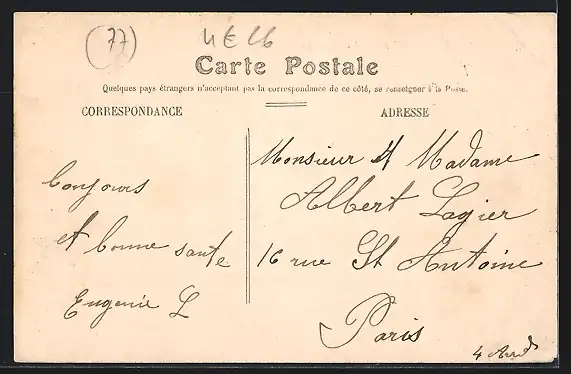 77
Carte Postale
Quelques pays étrangers n'acceptant pas la correspondance de ce côté, se renseigner à la Poste.
CORRESPONDANCE
ADRESSE
Bonjours
et bonne sante
Eugenie L
Monsieur et Madame
Albert Lagier
16 rue St Antoine
Paris
4